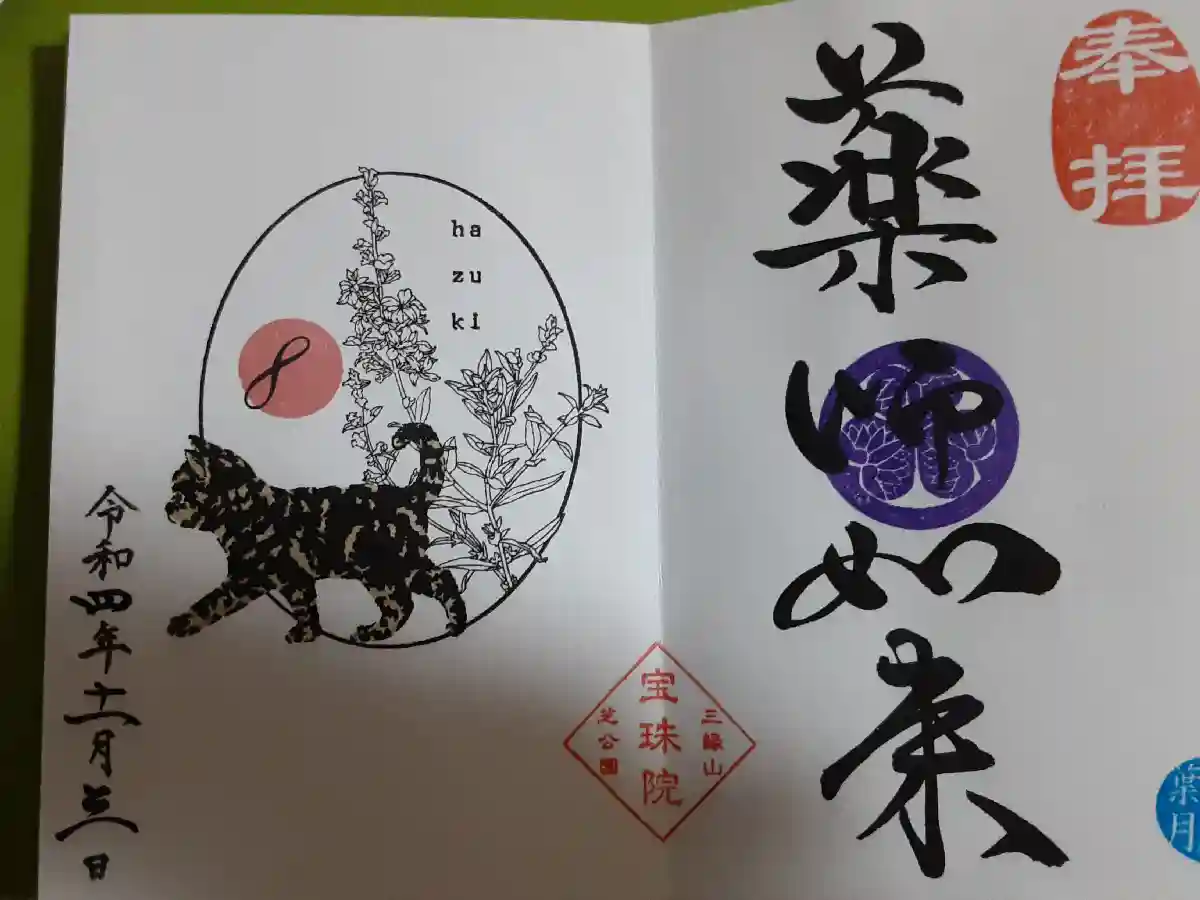 奉拝
薬師如来
葉月
三縁山
宝珠院
芝公園
ha
zu
ki
8
令和四年十一月三日